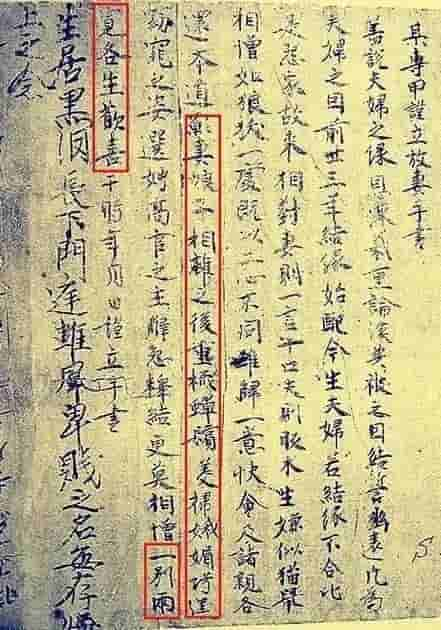 某專甲謹立放妻手書
蓋說夫婦之緣恩深義重論談共被之因結誓幽遠凡為
夫婦之因前世三年結緣始配今生夫婦若結緣不合比
是怨家故來相對妻則一言十口夫則販木生嫌似猫鼠
相憎如狼犺一處既以二心不同難歸一意快會及諸親各
還本道願妻娘子相離之後重梳蟬鬢美掃娥媚巧逞
窈窕之姿選娉高官之主解怨釋結更莫相憎一別兩
寬各生歡喜于時年月日謹立手書
生居黑洞長下逢難卑賤之名無存
上之